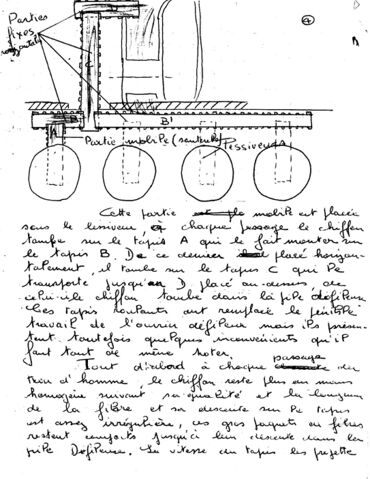 Parties
fixes
horizontales
4
C
B'
Partie mobile (
Lessiveurs
Cette partie mobile est placée
sous le lessiveur, à chaque passage le chiffon
tombe sur le tapis A qui le fait monter sur
le tapis B. De ce dernier placé horizon-
talement, il tombe sur le tapis C qui le
transporte jusqu'au D placé au-dessus de
celui-ci le chiffon tombe dans la pile défileuse
Ces tapis roulants ont remplacé le pénible
travail de l'ouvrier défileur mais ils présen-
tent toutefois quelques inconvénients qu'il
faut tout de même noter.
Tout d'abord à chaque passage du
trou d'homme, le chiffon reste plus ou moins
homogène suivant sa qualité et la longueur
de la fibre et sa descente sur le tapis
est assez irrégulière, ces gros paquets ou fibres
restent jusqu'à leur descente dans la
pile Défileuse. La vitesse du tapis les projette